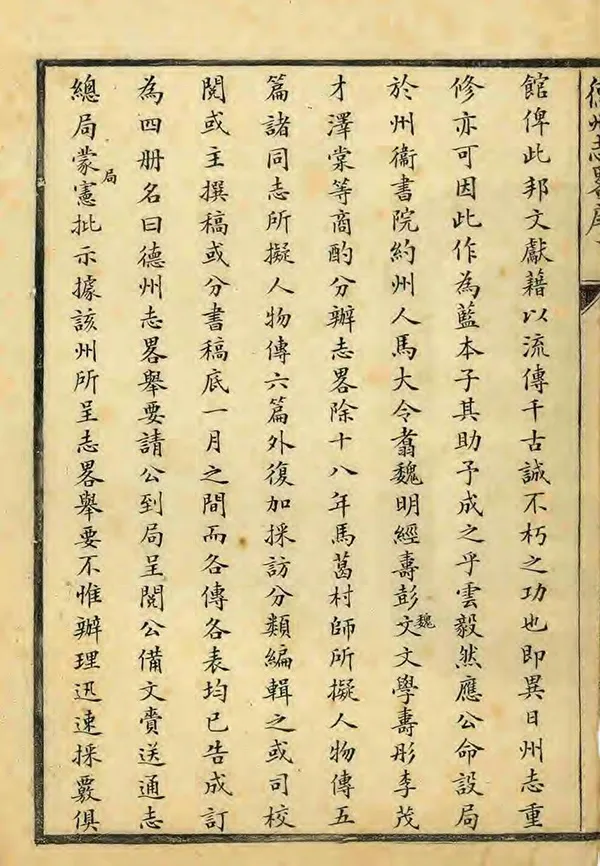 德州志畧序
館俾此邦文獻藉以流傳千古誠不朽之功也即異日州志重
修亦可因此作為藍本子其助予成之乎雲毅然應公命設局
於州衞書院約州人馬大令翥魏明經壽彭魏文文學壽彤李茂
才澤棠等商酌分辦志畧除十八年馬葛村師所擬人物傳五
篇諸同志所擬人物傳六篇外復加採訪分類編輯之或司校
閱或主撰稿或分書稿底一月之間而各傳各表均已告成訂
為四册名曰德州志畧舉要請公到局呈閱公備文賫送通志
總局蒙局憲批示據該州所呈志畧舉要不惟辦理迅速採覈俱